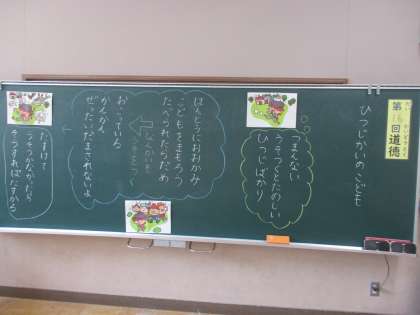 第16回道徳
ひつじかいのこども
つまんない
うそつくとたのしい
ひつじばかり
ほんとうにおおかみ
こどもをまもろう
たべられたらだめ
なんかいも
うそをつく
おこっている
かんかん
ぜったいだまされないよ
たすけて
うそつかなかったら
そうすればよかった